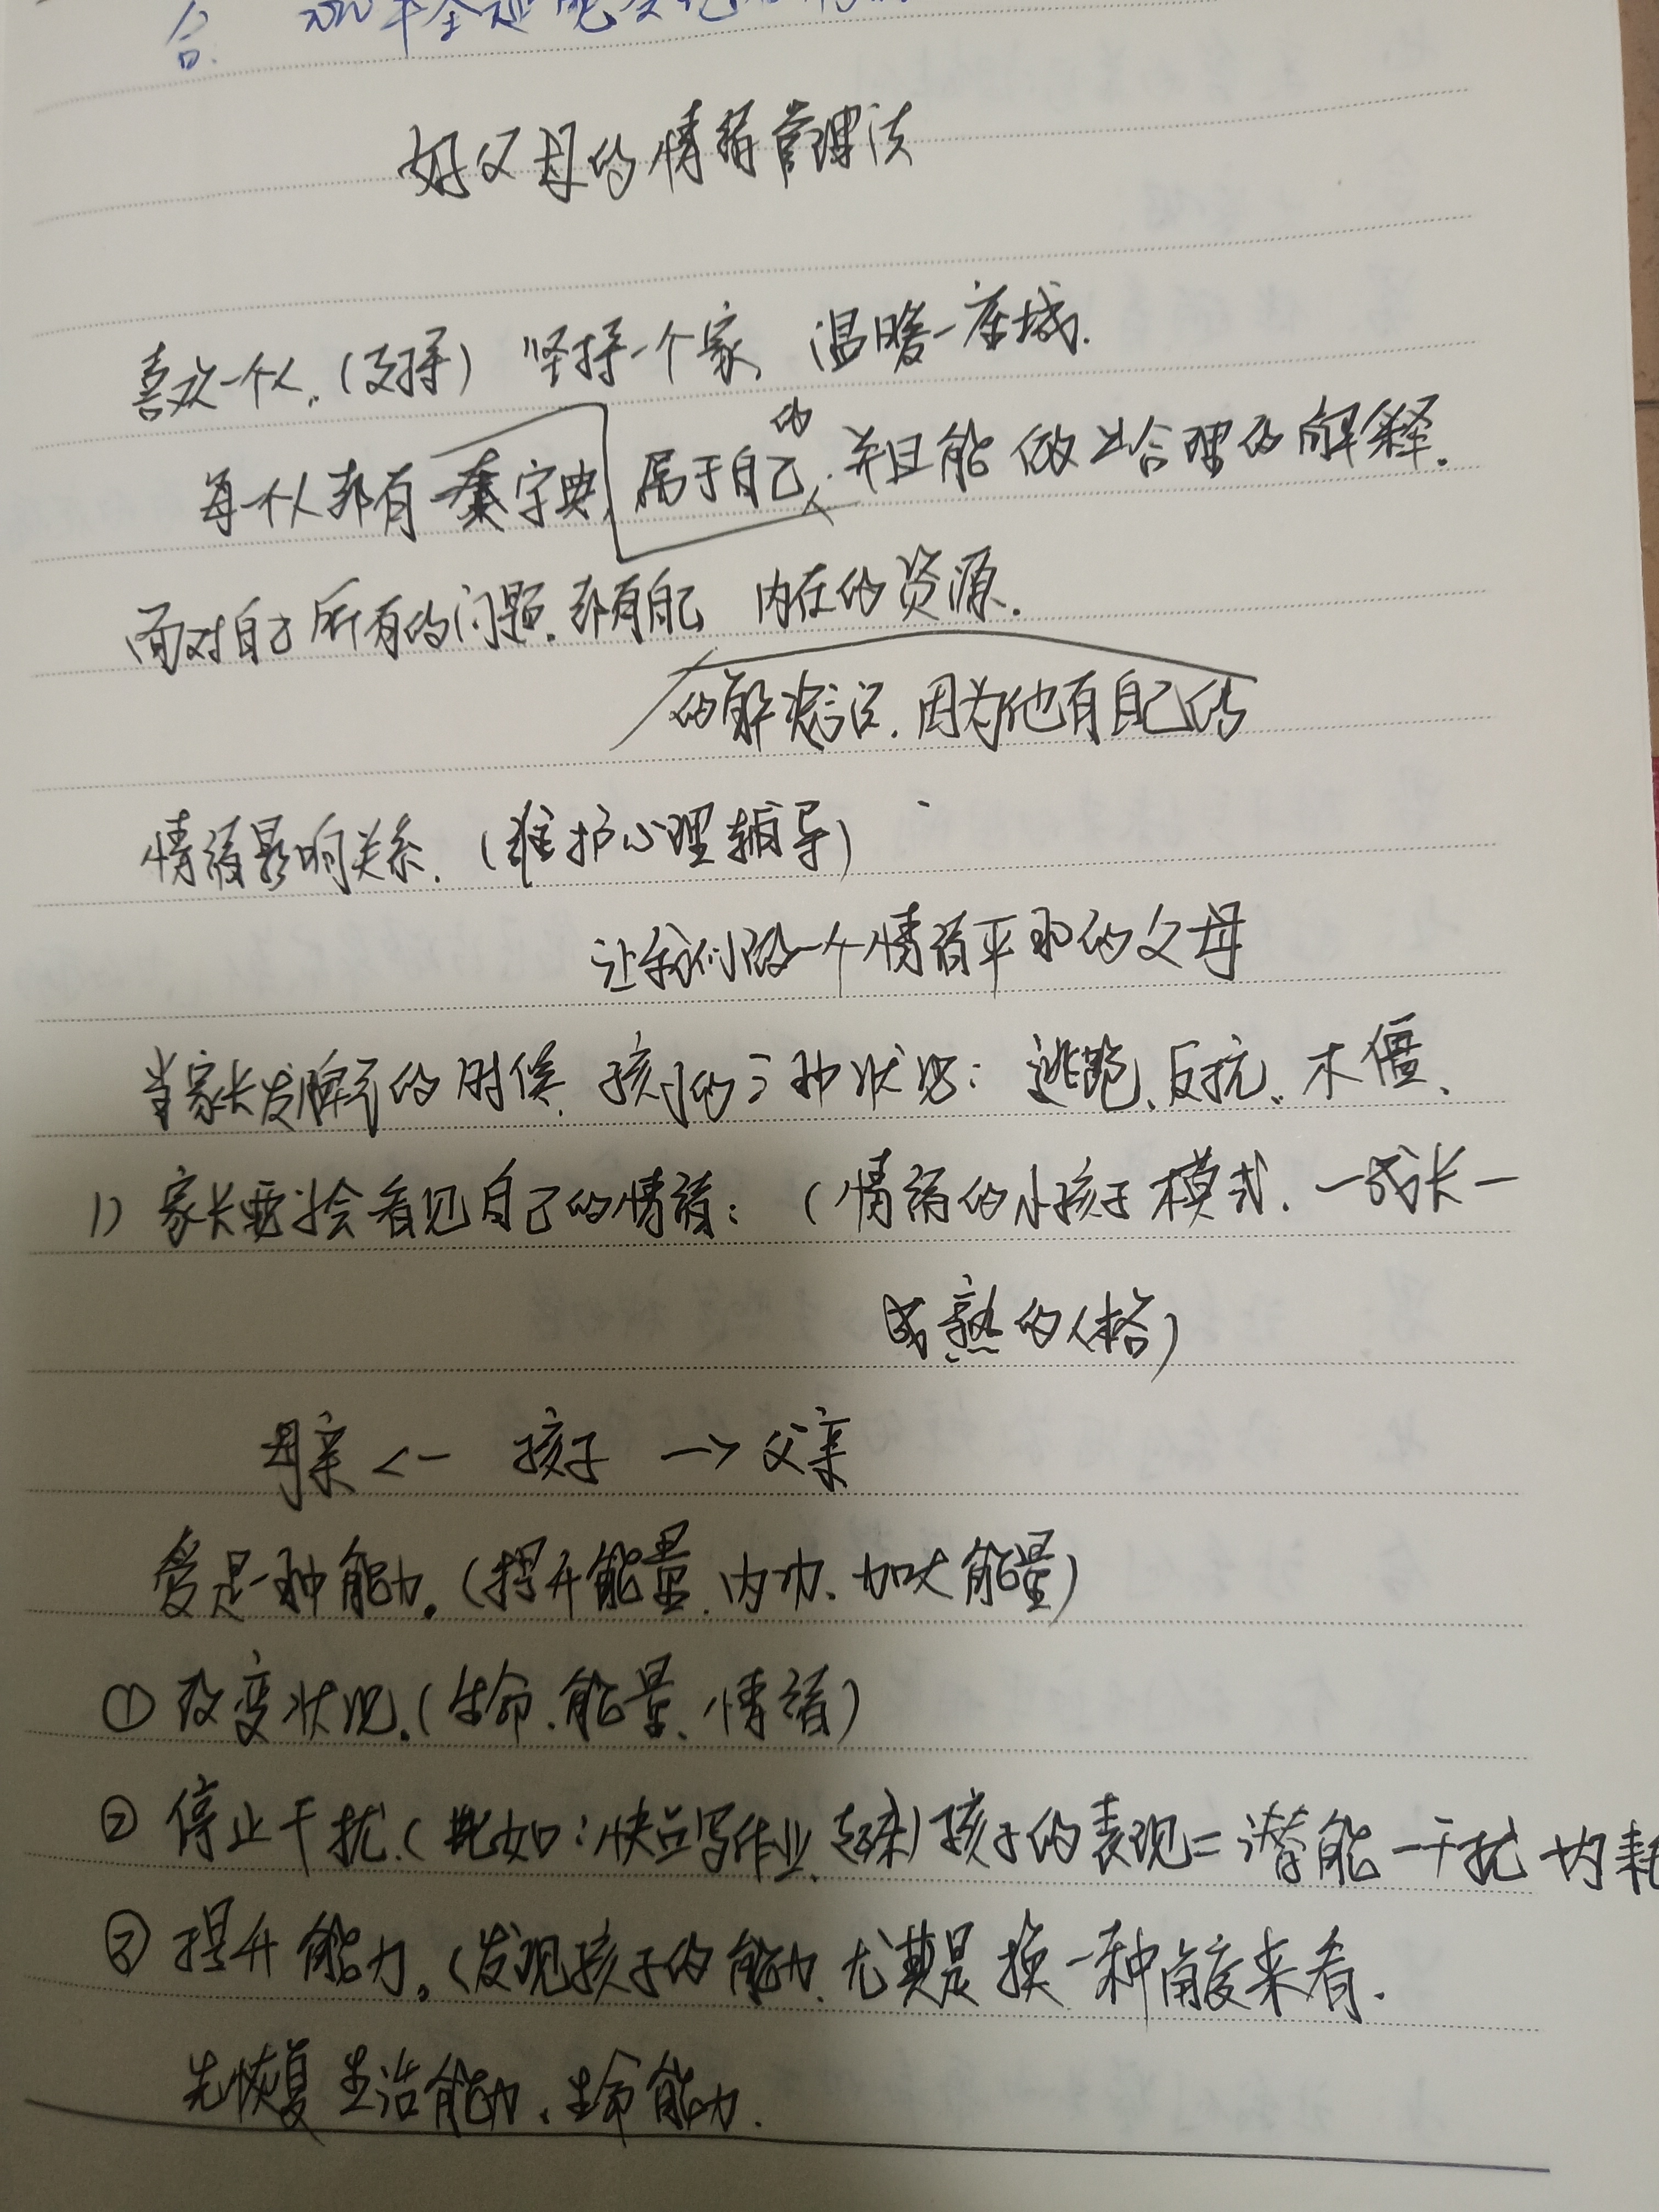 好父母的情绪管理法
喜欢一个人.(支持) 坚持一个家, 温暖一座城.
每一个人都有一套字典, 属于自己的, 并且能做出合理的解释.
面对自己所有的问题.都有自己 内在的资源.
的解决方法.因为他有自己的
情绪影响关系.(维护心理辅导)
让我们做一个情绪平和的父母
当家长发脾气的时候, 孩子的三种状况: 逃跑、反抗、木僵、
1) 家长要学会看见自己的情绪: (情绪的小孩子模式. —成长—
成熟的人格)
母亲 <— 孩子 —> 父亲
爱是一种能力.(提升能量、内功、加大能量)
① 改变状况.(生命、能量、情绪)
② 停止干扰.(比如:快点写作业、起床)孩子的表现=潜能—干扰 内耗
③ 提升能力.(发现孩子的能力、尤其是换一种角度来看.
先恢复生活能力、生命能力.